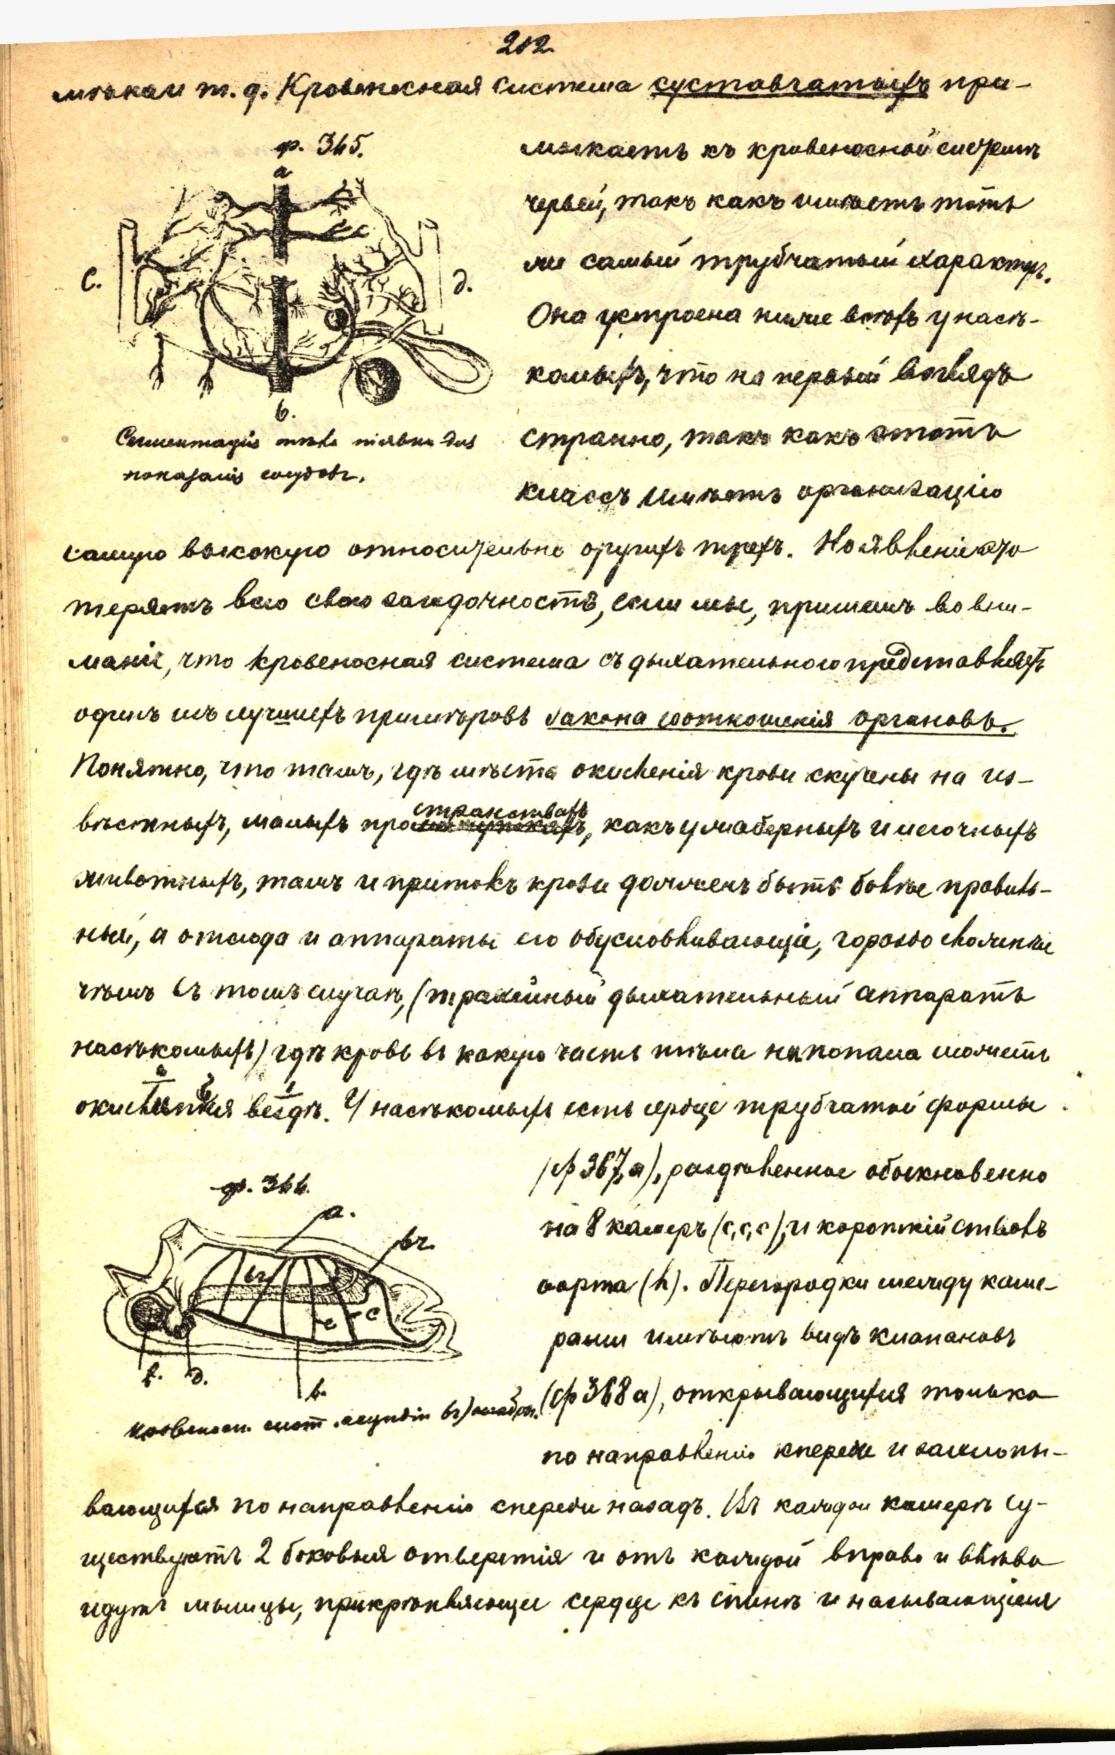 212.
мѣкаи т. д. Кровеносная система суставчатыхъ при-
ф. 365.
a
c.
д.
b.
Сегментація тѣла піявки для
показанія сосудовъ.
мыкаетъ къ кровеносной системѣ
червей, такъ какъ имѣетъ тотъ
же самый трубчатый характеръ.
Она устроена ниже всѣхъ у насѣ-
комыхъ, что на первый взглядъ
странно, такъ какъ этотъ
классъ имѣетъ организацію
самую высокую относительно другихъ трехъ. Но явленіе это
теряетъ всю свою загадочность, если мы, примемъ во вни-
маніе, что кровеносная система съ дыхательною представляетъ
одинъ изъ лучшихъ примѣровъ закона соотношенія органовъ.
Понятно, что тамъ, гдѣ мѣста окисленія крови скучены на из-
вѣстныхъ, малыхъ пространствахъ, какъ у жаберныхъ и легочныхъ
животныхъ, тамъ и притокъ крови долженъ быть болѣе правиль-
ный, а отсюда и аппараты его обусловливающіе, гораздо сложнѣе
чѣмъ въ томъ случаѣ, (трахейный дыхательный аппаратъ
насѣкомыхъ) гдѣ кровь въ какую часть тѣла ни попала можетъ
окисляться вездѣ. У насѣкомыхъ есть сердце трубчатой формы
ф. 366.
a.
br.
br
c
c
f.
d.
b.
Кровеносн. сист. асцидіи br) жабры.
(ф 367, a), раздѣленное обыкновенно
на 8 камеръ (c, c, c), и короткій стволъ
аорта (h). Перегородки между каме-
рами имѣютъ видъ клапановъ
(ф 368 a), открывающихся только
по направленію кпереди и захлопы-
вающихся по направленію спереди назадъ. Въ каждой камерѣ су-
ществуютъ 2 боковыя отверстія и отъ каждой вправо и влѣво
идутъ мышцы, прикрѣпляющіе сердце къ спинѣ и называющіеся